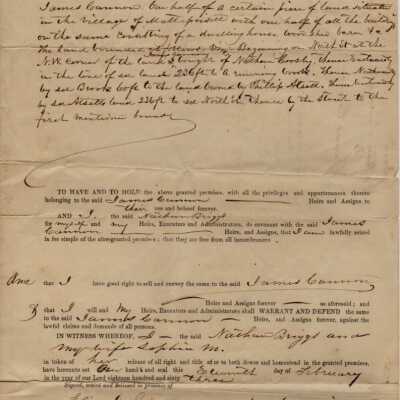 James Cannon One half of a certain piece of land situated
in the Village of Mattapoisett with one half of all the buildings
on the same Consisting of a dwelling house wood
The land bounded as follows Viz Beginning on North St at the
N.W. corner of the land I bought of Nathan Crosby, thence Easterly
in the line of sd land 236 ft to a running brook. Thence Northerly
by sd Brook 60 ft to the land owned by Phillip Atsatt. Thence Westerly
by sd Atsatts land 236 ft to sd North St thence by the Street to the
first mention bound
TO HAVE AND TO HOLD the above granted premises, with all the privileges and appurtenances thereto
belonging to the said James Cannon Heirs and Assigns to
their use and behoof forever.
AND I, the said Nathan Briggs
for myself and my Heirs, Executors and Administrators, do covenant with the said James
Cannon Heirs and Assigns, that I am lawfully seized
in fee simple of the aforegranted premises: that they are free from all incumbrances
And that I have good right to sell and convey the same to the said James Cannon
Heirs and Assigns forever as aforesaid; and
that I will and My Heirs, Executors and Administrators shall WARRANT AND DEFEND the same
to the said James Cannon Heirs and Assigns forever, against the
lawful claims and demands of all persons.
IN WITNESS WHEREOF, I the said Nathan Briggs and
my wife Sophia M.
in token of her release of all right and title of or to both dower and homestead in the granted premises,
have hereunto set Our hand and seal this Eleventh day of February
in the year of our Lord eighteen hundred and sixty three
Signed, sealed and delivered in presence of